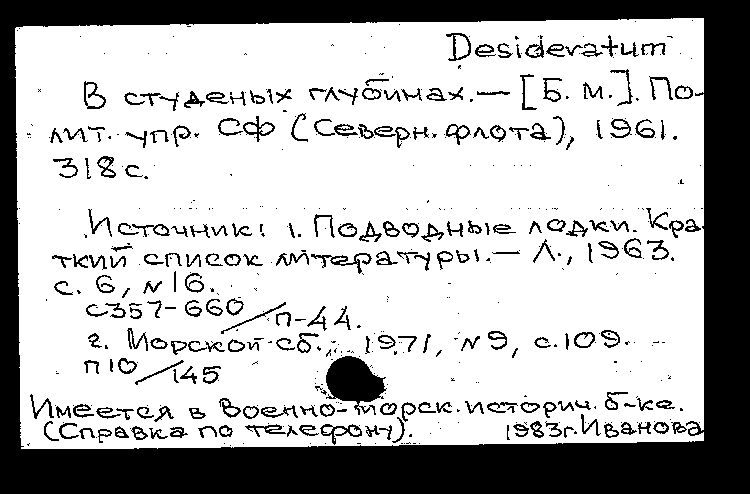 Desideratum
В студеных глубинах.— [Б. м.]. По-
лит. упр. СФ (Северн. флота), 1961.
318 с.
Источник: 1. Подводные лодки. Кра
ткий список литературы.— Л., 1963.
с. 6, N 16.
с357-660/п-44.
2. Морской сб., 1971, N 9, с. 109.
п10/145
Имеется в Военно-морск. историч. б-ке.
(Справка по телефону). 1983г. Иванова